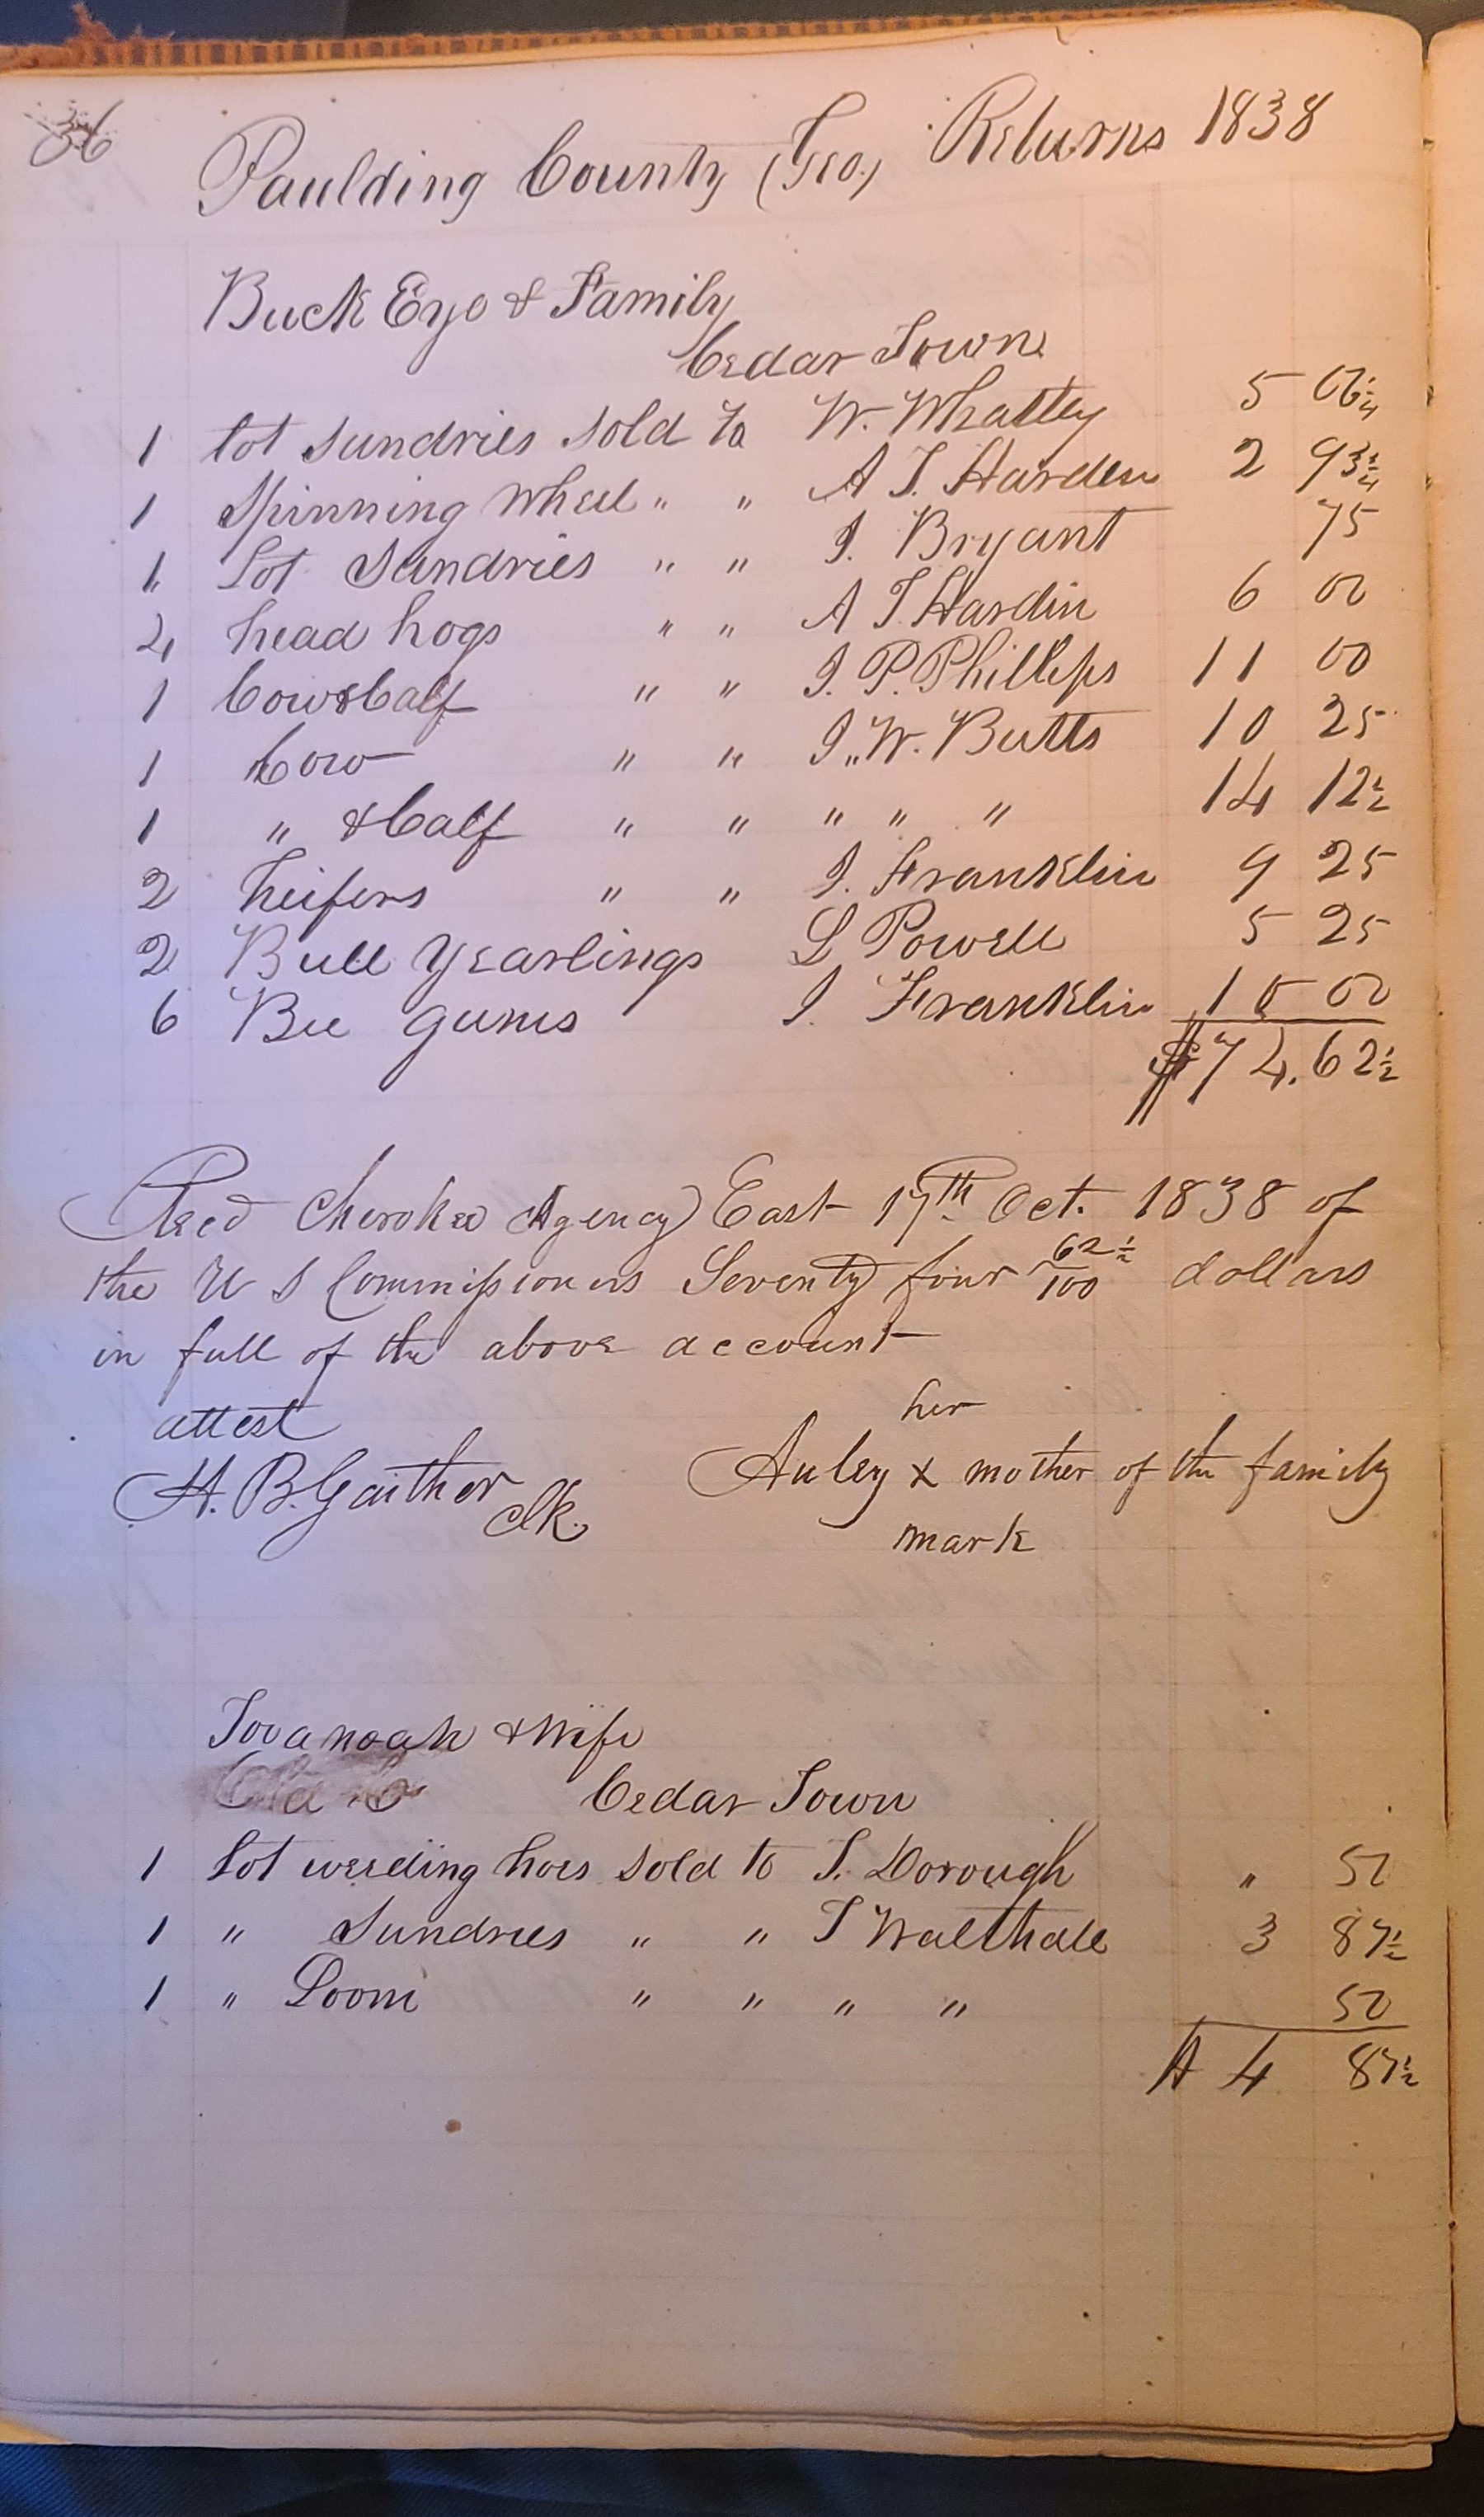 36
Paulding County (Geo.) Returns 1838
Buck Eye & Family
Cedar Town
1 lot sundries sold to W. Whatley 5 06¼
1 Spinning Wheel " " A T. Harden 2 93¾
1 Lot Sundries " " J. Bryant 75
4 head hogs " " A T. Hardin 6 00
1 Cow & Calf " " J. P. Phillips 11 00
1 Cow " " J. W. Butts 10 25
1 " & Calf " " " " " 14 12½
2 heifers " " J. Franklin 9 25
2 Bull Yearlings L Powell 5 25
6 Bee gums J. Franklin 10 00
$74.62½
Recd Cherokee Agency East 17th Oct. 1838 of
the U S Commissioners Seventy four 62½/100 dollars
in full of the above account
attest her
H. B. Gaither Clk. Auley x mother of the family
mark
Tovanoah & Wife
Cedar Town
1 Lot weeding hoes sold to T. Dorough " 50
1 " Sundries " " T Walthall 3 87½
1 " Loom " " " " 50
$ 4 87½